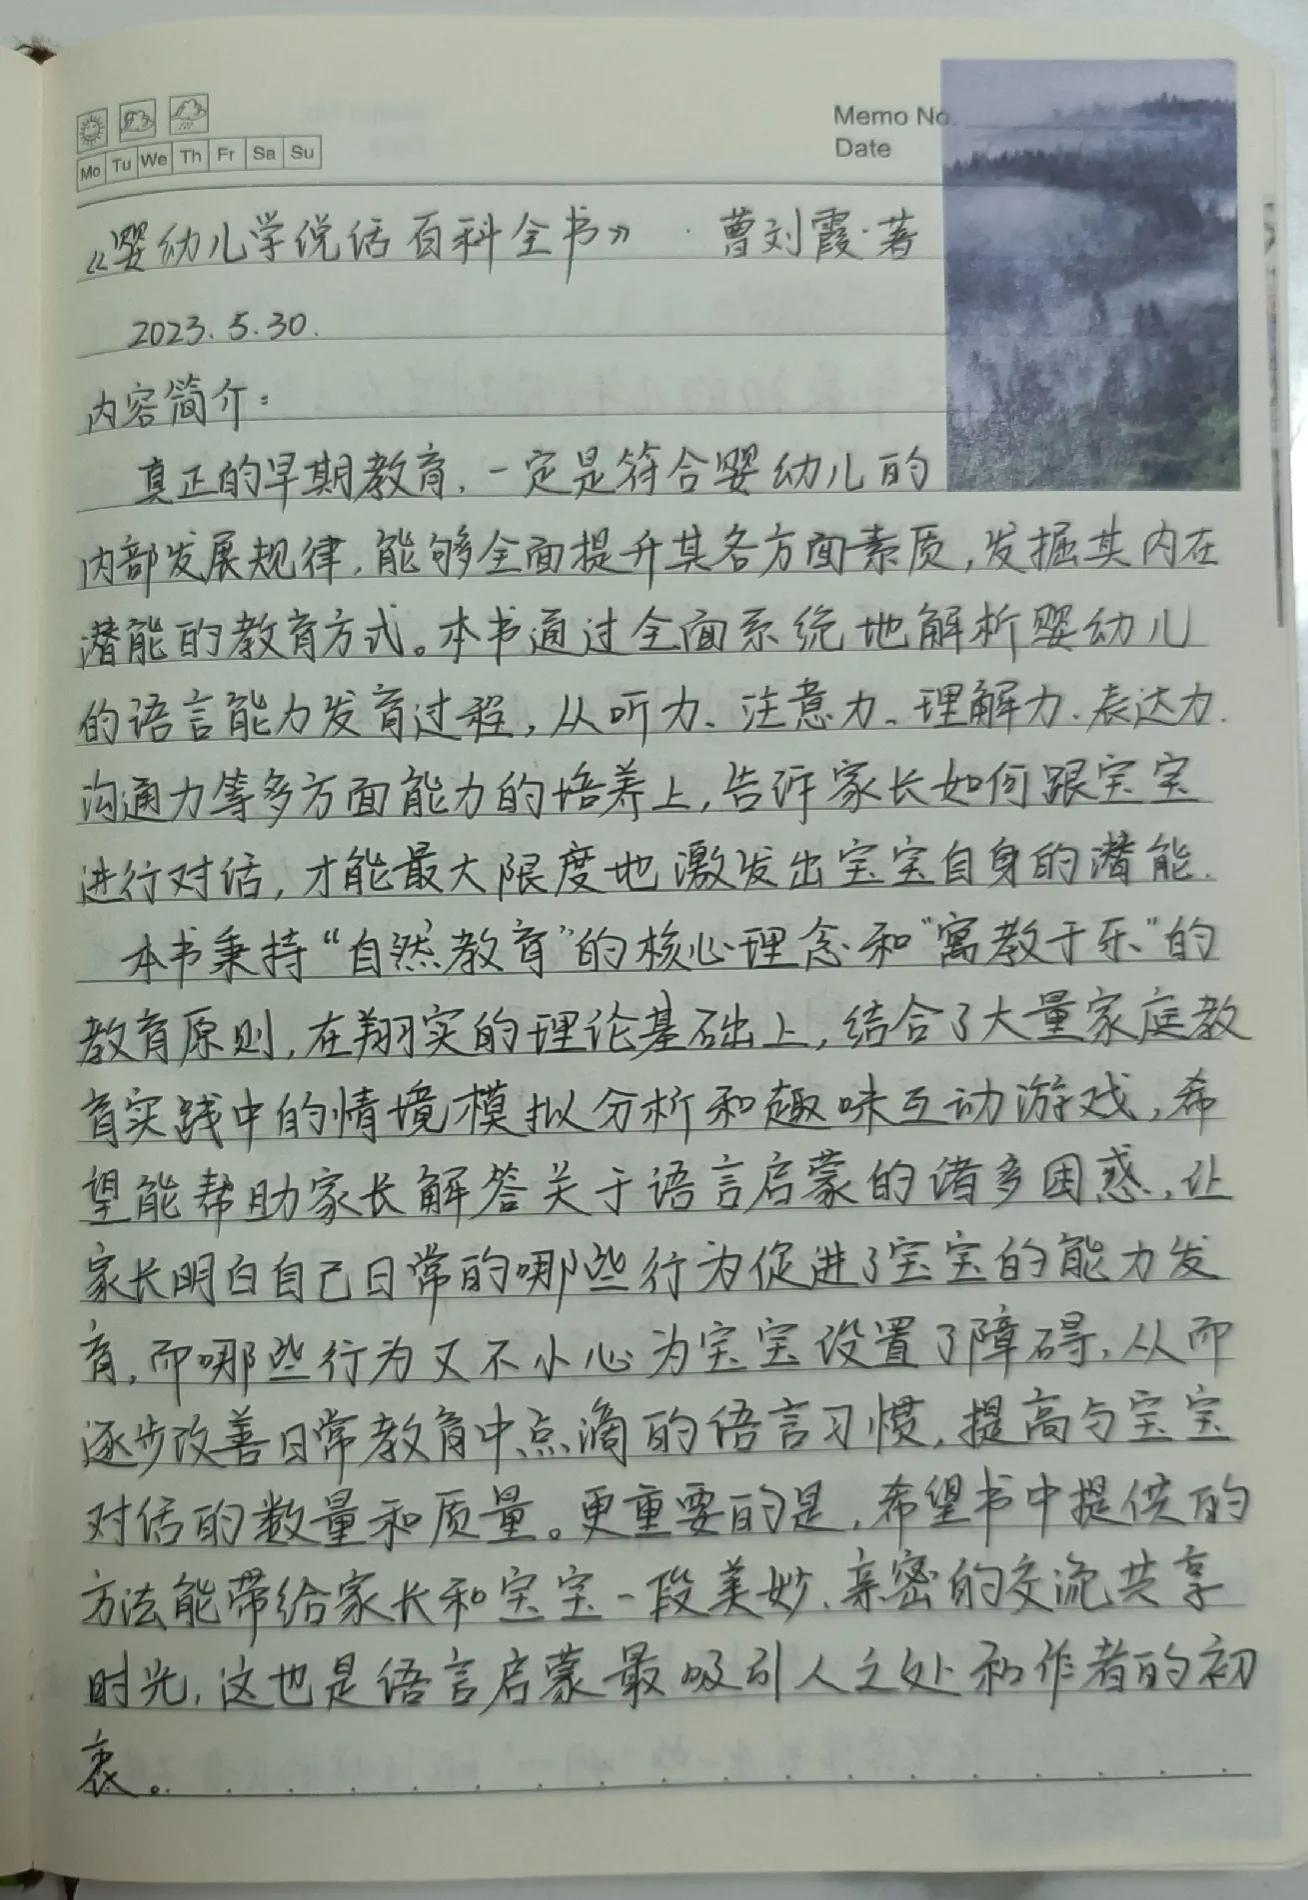 Memo No.
Mo Tu We Th Fr Sa Su
Date
《婴幼儿学说话百科全书》 · 曹刘霞·著
2023.5.30.
内容简介:
真正的早期教育,一定是符合婴幼儿的
内部发展规律,能够全面提升其各方面素质,发掘其内在
潜能的教育方式。本书通过全面系统地解析婴幼儿
的语言能力发育过程,从听力、注意力、理解力、表达力、
沟通力等多方面能力的培养上,告诉家长如何跟宝宝
进行对话,才能最大限度地激发出宝宝自身的潜能.
本书秉持“自然教育”的核心理念和“寓教于乐”的
教育原则,在翔实的理论基础上,结合了大量家庭教
育实践中的情境模拟分析和趣味互动游戏,希
望能帮助家长解答关于语言启蒙的诸多困惑,让
家长明白自己日常的哪些行为促进了宝宝的能力发
育,而哪些行为又不小心为宝宝设置了障碍,从而
逐步改善日常教育中点滴的语言习惯,提高与宝宝
对话的数量和质量。更重要的是,希望书中提供的
方法能带给家长和宝宝一段美妙、亲密的交流共享
时光,这也是语言启蒙最吸引人之处和作者的初
衷。